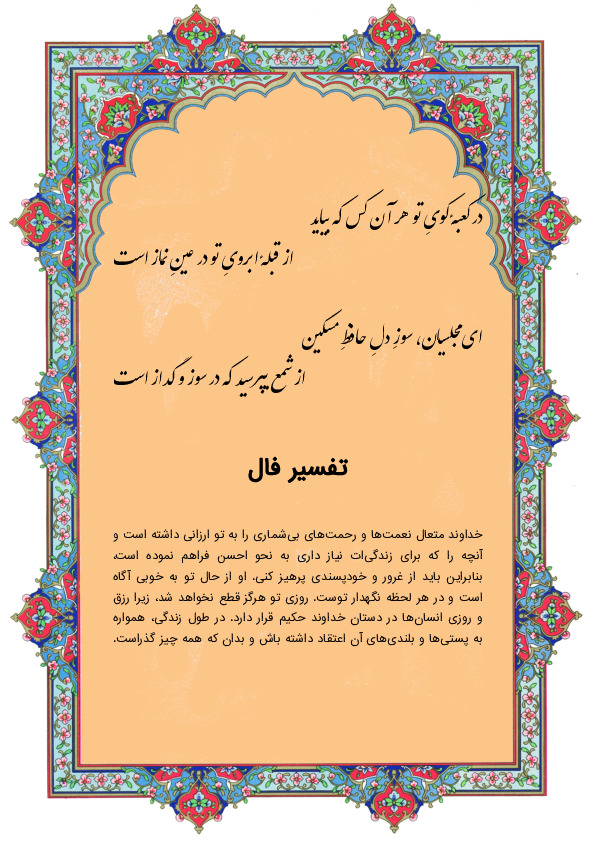 در کعبهٔ کویِ تو هر آن کس که بیاید
از قبلهٔ ابرویِ تو در عینِ نماز است
ای مجلسیان، سوزِ دلِ حافظِ مسکین
از شمع بپرسید که در سوز و گداز است
تفسیر فال
خداوند متعال نعمت‌ها و رحمت‌های بی‌شماری را به تو ارزانی داشته است و
آنچه را که برای زندگی‌ات نیاز داری به نحو احسن فراهم نموده است،
بنابراین باید از غرور و خودپسندی پرهیز کنی. او از حال تو به خوبی آگاه
است و در هر لحظه نگهدار توست. روزی تو هرگز قطع نخواهد شد، زیرا رزق
و روزی انسان‌ها در دستان خداوند حکیم قرار دارد. در طول زندگی، همواره
به پستی‌ها و بلندی‌های آن اعتقاد داشته باش و بدان که همه چیز گذراست.